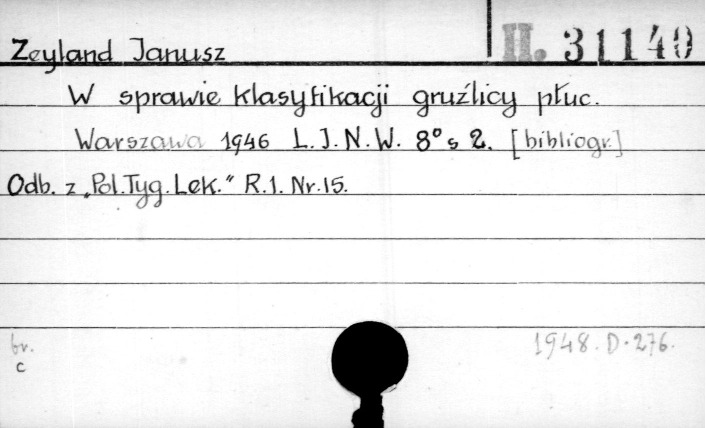 Zeyland Janusz II. 31140
W sprawie klasyfikacji gruźlicy płuc.
Warszawa 1946 L.I.N.W. 8° s 2. [bibliogr.]
Odb. z „Pol.Tyg.Lek." R.1. Nr.15.
br. 1948.D.276.
c